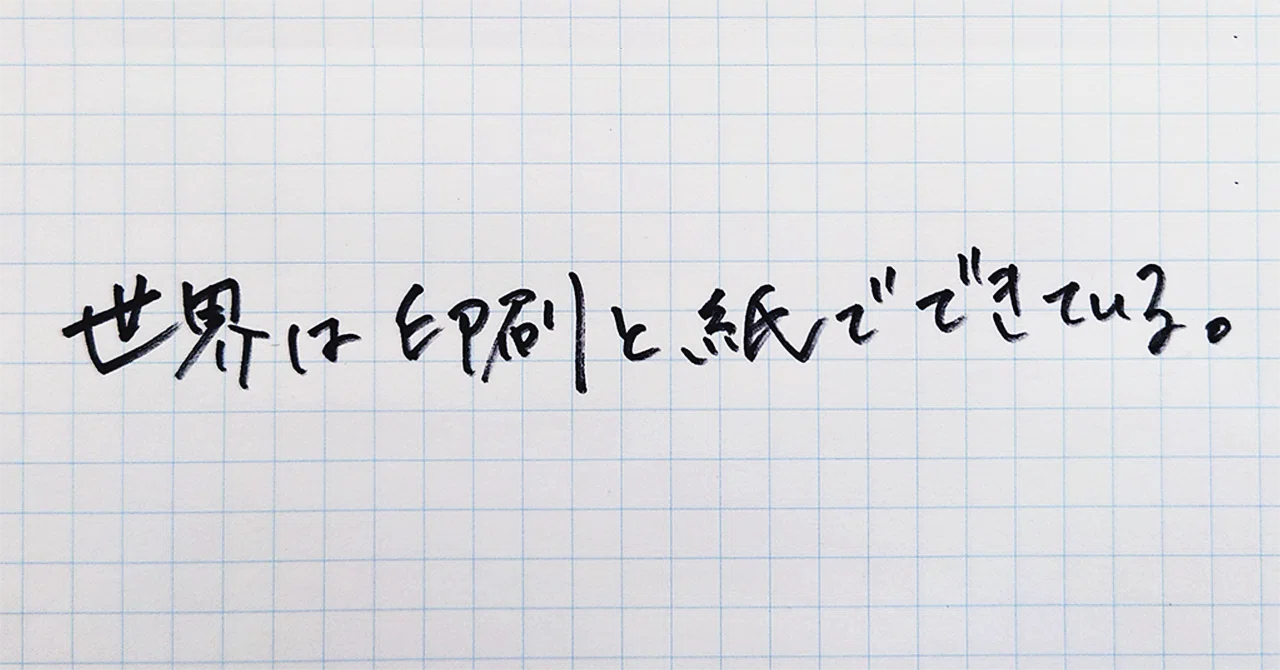 世界は印刷と紙でできている。